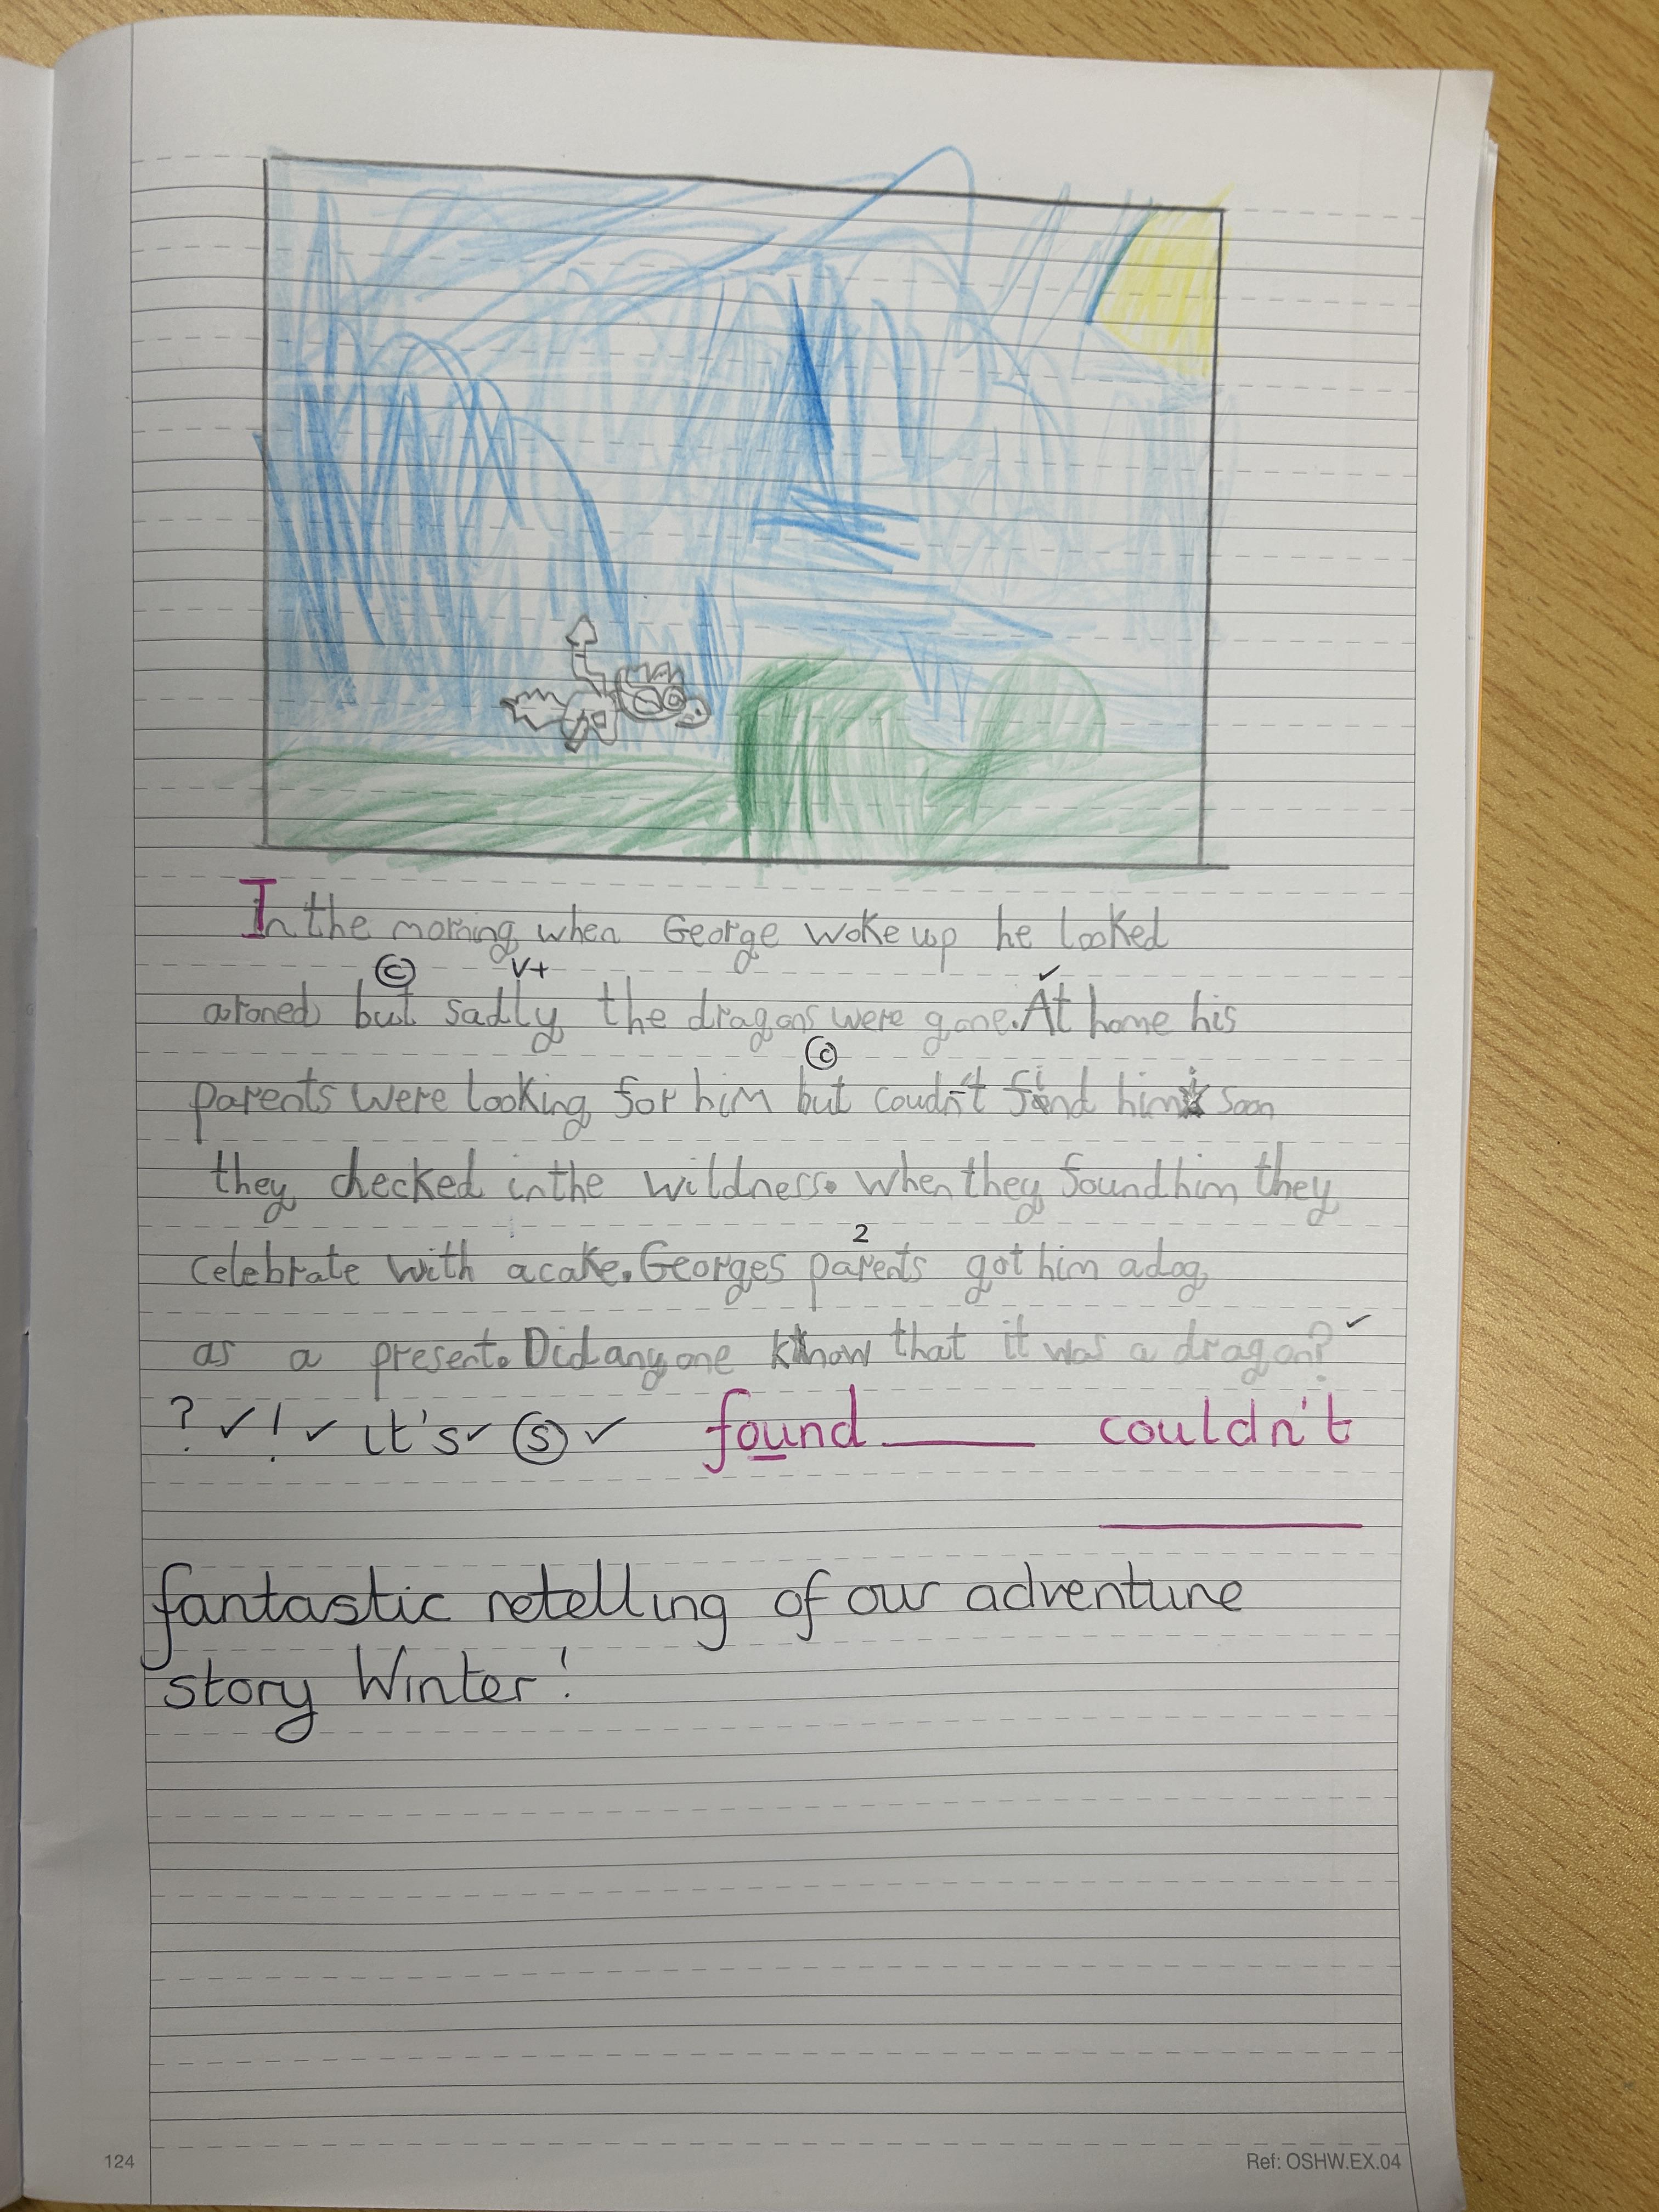 In the morning when George woke up he looked
© V+ ✓
aroned but sadly the dragons were gone. At home his
©
parents were looking for him but coudn't find him soon
they checked in the wildness. when they found him they
2
celebrate with a cake. Georges parents got him a dog
✓
as a present. Did any one know that it was a dragon?
? ✓ ! ✓ it's ✓ Ⓢ ✓ found couldn't
fantastic retelling of our adventure
story Winter!
124 Ref: OSHW.EX.04